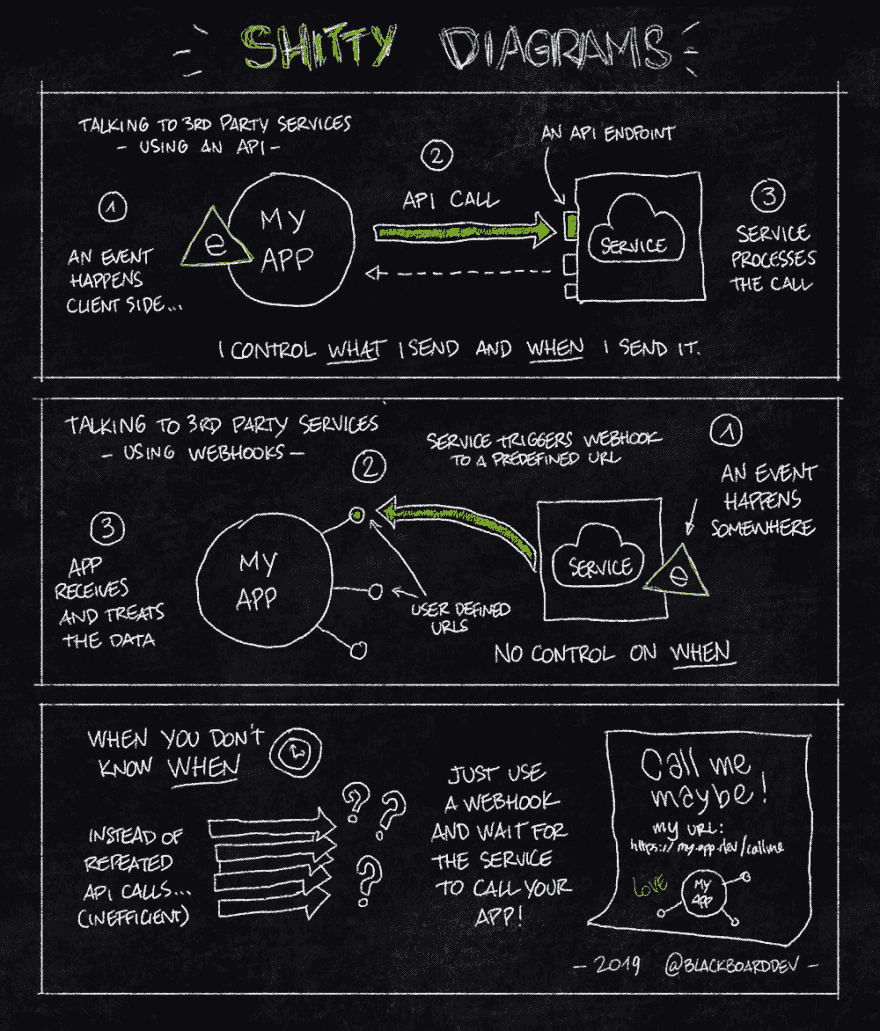 SHITTY DIAGRAMS
TALKING TO 3RD PARTY SERVICES
- USING AN API -
1
AN EVENT
HAPPENS
CLIENT SIDE...
e
MY
APP
2
API CALL
AN API ENDPOINT
SERVICE
3
SERVICE
PROCESSES
THE CALL
I CONTROL WHAT I SEND AND WHEN I SEND IT.
TALKING TO 3RD PARTY SERVICES
- USING WEBHOOKS -
1
AN EVENT
HAPPENS
SOMEWHERE
e
SERVICE
2
SERVICE TRIGGERS WEBHOOK
TO A PREDEFINED URL
USER DEFINED
URLS
3
APP
RECEIVES
AND TREATS
THE DATA
MY
APP
NO CONTROL ON WHEN
WHEN YOU DON'T
KNOW WHEN
INSTEAD OF
REPEATED
API CALLS...
(INEFFICIENT)
? ?
?
JUST USE
A WEBHOOK
AND WAIT FOR
THE SERVICE
TO CALL YOUR
APP!
Call me
maybe!
my URL:
https://my.app.dev/callme
LOVE
MY
APP
- 2019 @BLACKBOARDDEV -